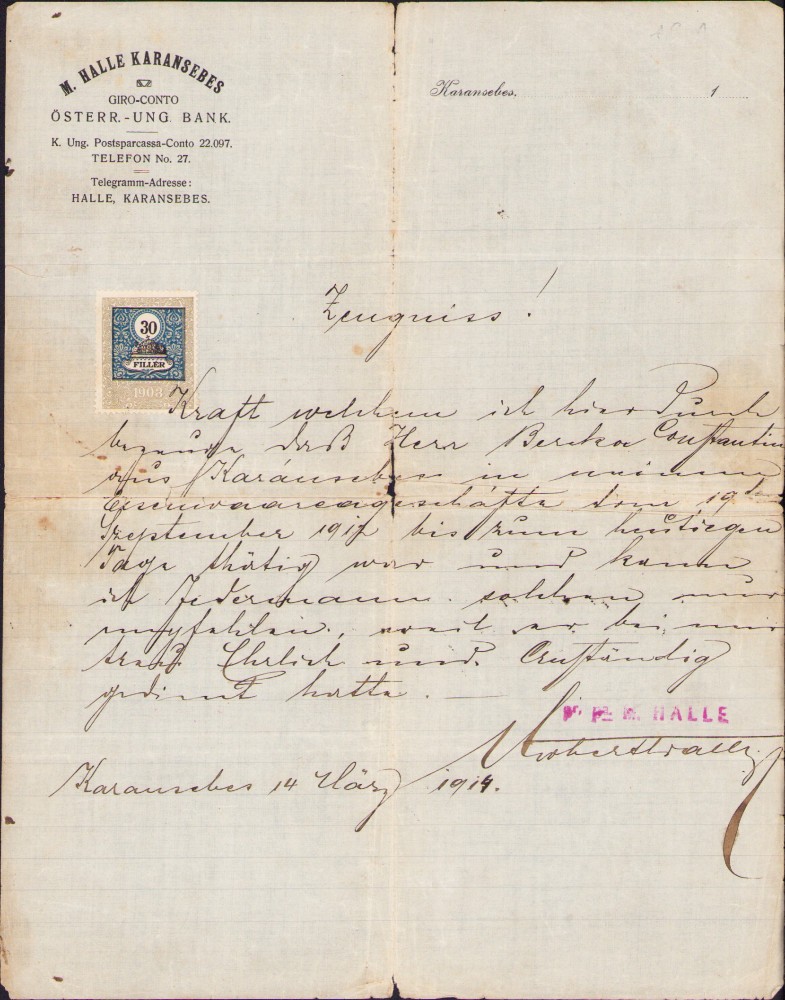 M. HALLE KARANSEBES
GIRO-CONTO
ÖSTERR.-UNG. BANK.
K. Ung. Postsparcassa-Conto 22.097.
TELEFON No. 27.
Telegramm-Adresse:
HALLE, KARANSEBES.
Karansebes, 1
30
FILLÉR
1903
Zeugniss!
Kraft welchem ich hier Durch
bezeuge daß Herr Berska Constantin
aus Karánsebes in meinem
Eisenwaarengeschäfte vom 19ten
September 1912 bis zum heutiegen
Tage thätig war und kann
ich Jedermann solchen nur
empfehlen, weil er bei mir
treu Ehrlich und Anständig
gedient hatte.
M. HALLE
Karansebes 14 März 1914.